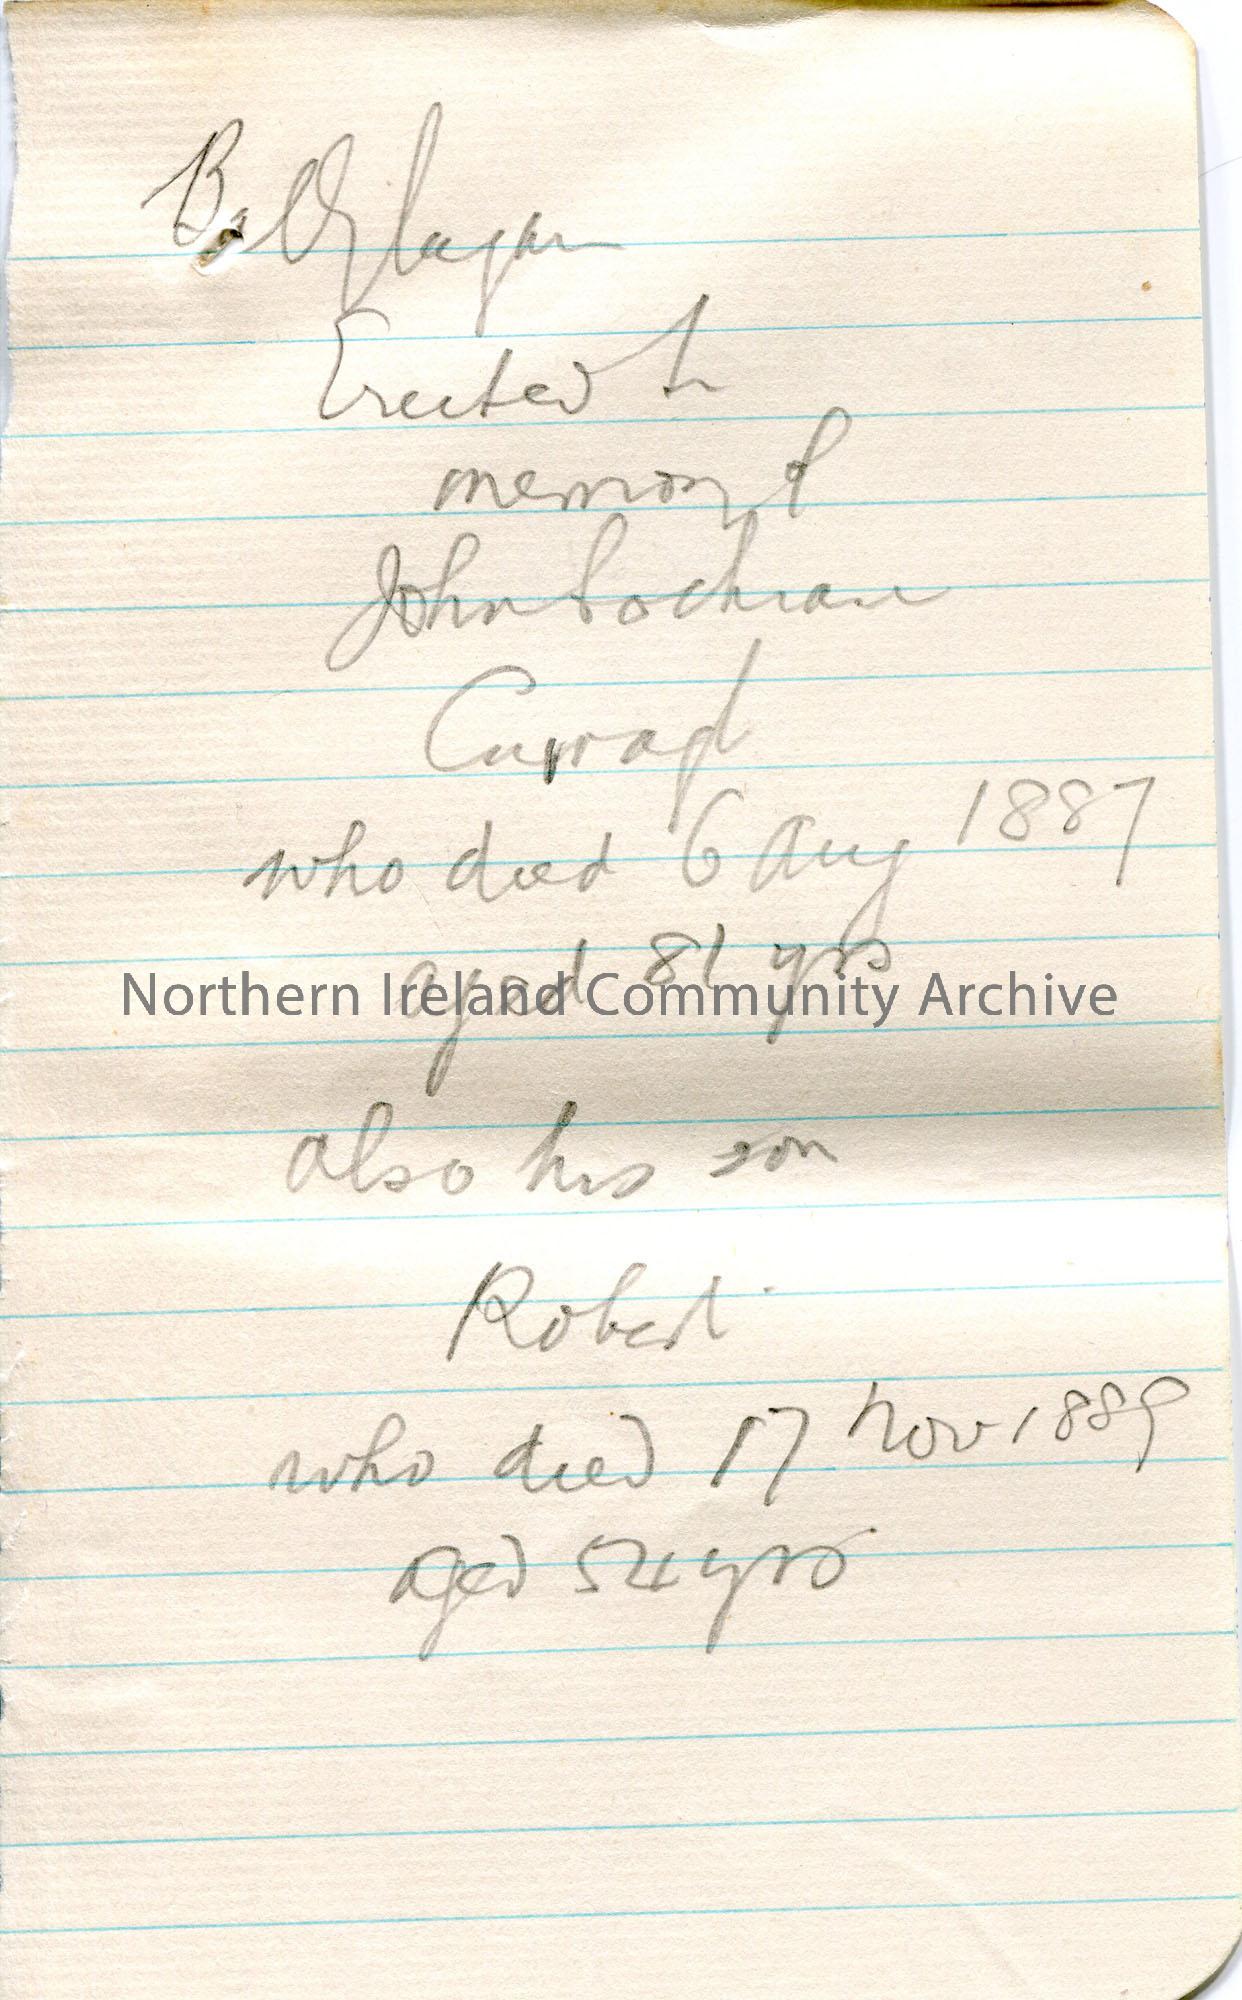 Ballylagan
Erected to
memory of
John Cochrane
Curragh
who died 6 Aug 1887
aged 81 yrs
Northern Ireland Community Archive
also his son
Robert
who died 17 Nov 1889
aged 54 yrs